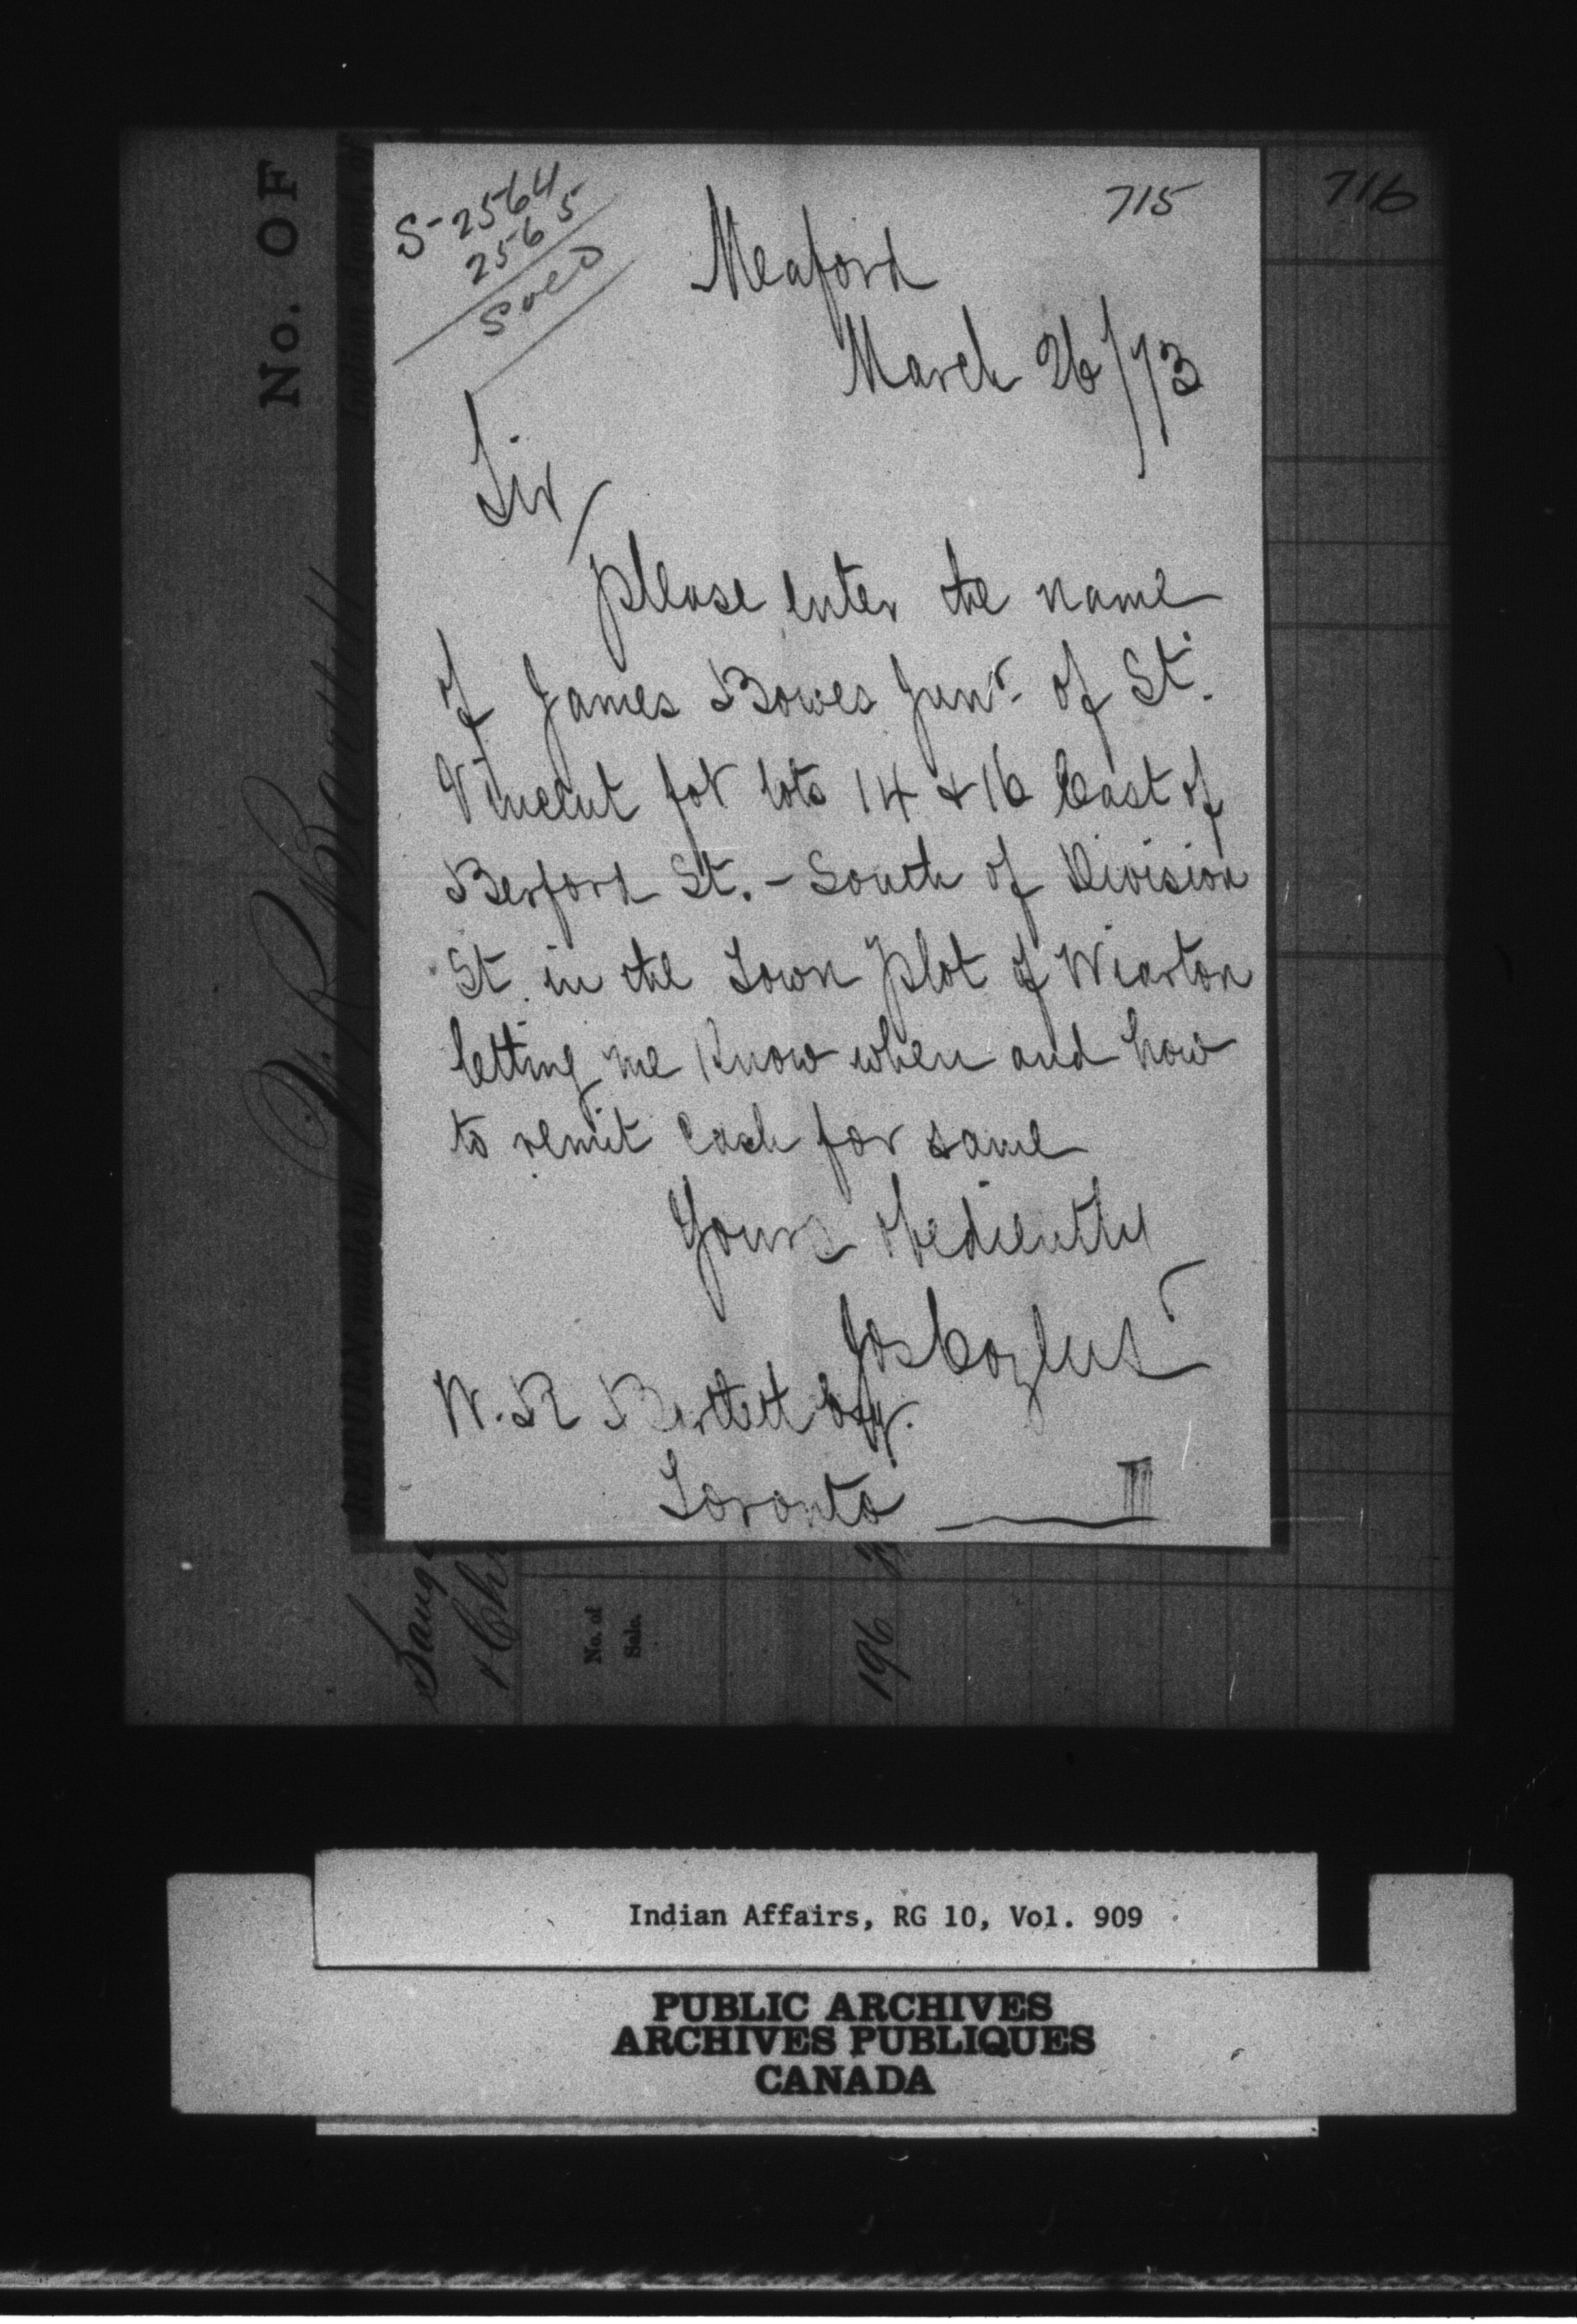 S-2564
2565
Sold
715
716
Meaford
March 26/73
Sir,
please enter the name
of James Bowes Junr. of St.
Vincent for lots 14 & 16 East of
Berford St. - South of Division
St. in the Town plot of Wiarton
letting me Know when and how
to remit Cash for same
Yours obediently
Jos
W. R Bartlett Esqr.
Toronto
No. OF
W. R. Bartlett
RETURN made by
Saug
& Ch
No. of
Sale.
196
Indian Affairs, RG 10, Vol. 909
PUBLIC ARCHIVES
ARCHIVES PUBLIQUES
CANADA